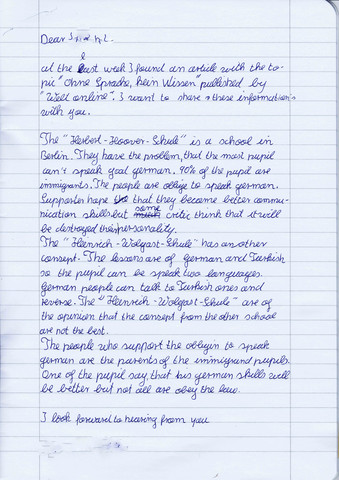 Dear
at the last week I found an article with the to-
pic "Ohne Sprache, kein Wissen" published by
"Welt online". I want to share these informations
with you.
The "Herbert-Hoover-Schule" is a school in
Berlin. They have the problem, that the most pupil
can't speak goal german. 90% of the pupil are
immigrants. The people are obliye to speak german.
Supporter hope that they become better commu-
nication skills but some critic think that it will
be destroyed their personality.
The "Heinrich-Wolgast-Schule" has an other
consept. The lessons are of german and Turkish
so the pupil can be speak two languages.
German people can talk to Turkish ones and
reverse. The "Heinrich-Wolgast-Schule" are of
the opinion that the concept from the other school
are not the best.
The people who support the obliyin to speak
german are the parents of the immigrand pupils.
One of the pupil say, that his german skills will
be better but not all are obey the law.
I look forward to hearing from you